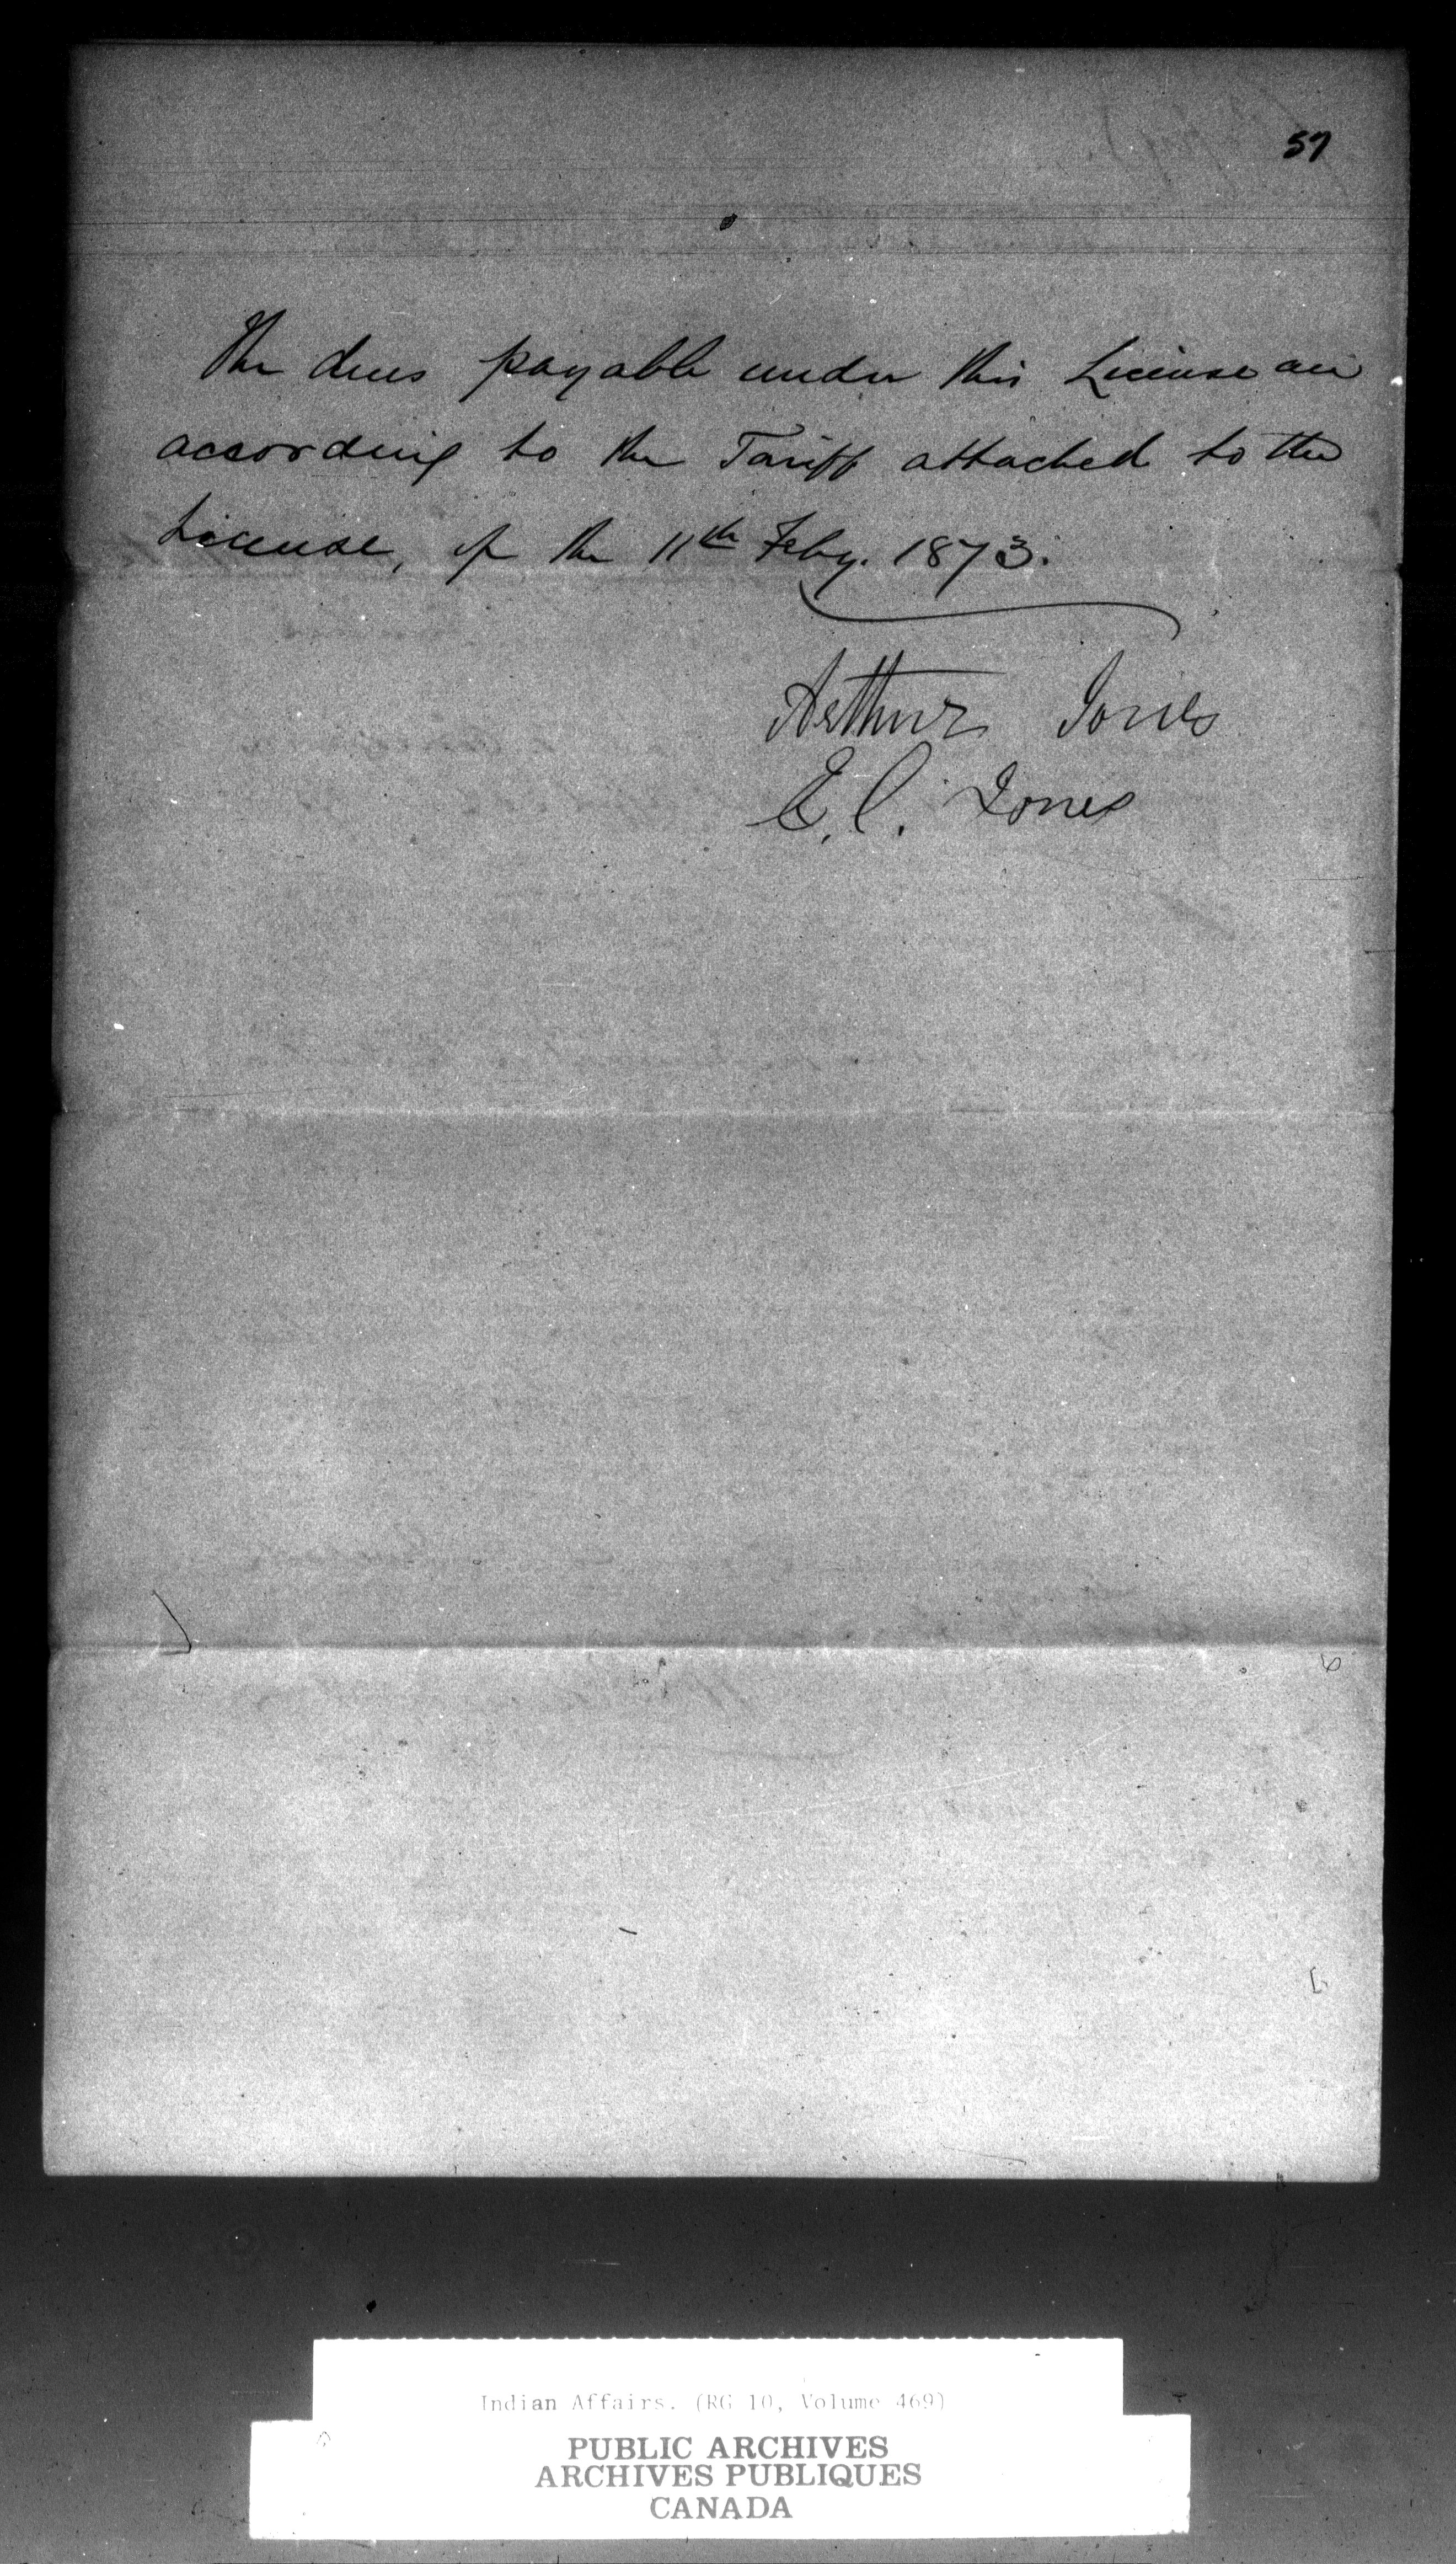 57
The dues payable under this License are
according to the Tariff attached to the
License, of the 11th Feby. 1873.
Arthur Jones
E. C. Jones
Indian Affairs. (RG 10, Volume 469)
PUBLIC ARCHIVES
ARCHIVES PUBLIQUES
CANADA